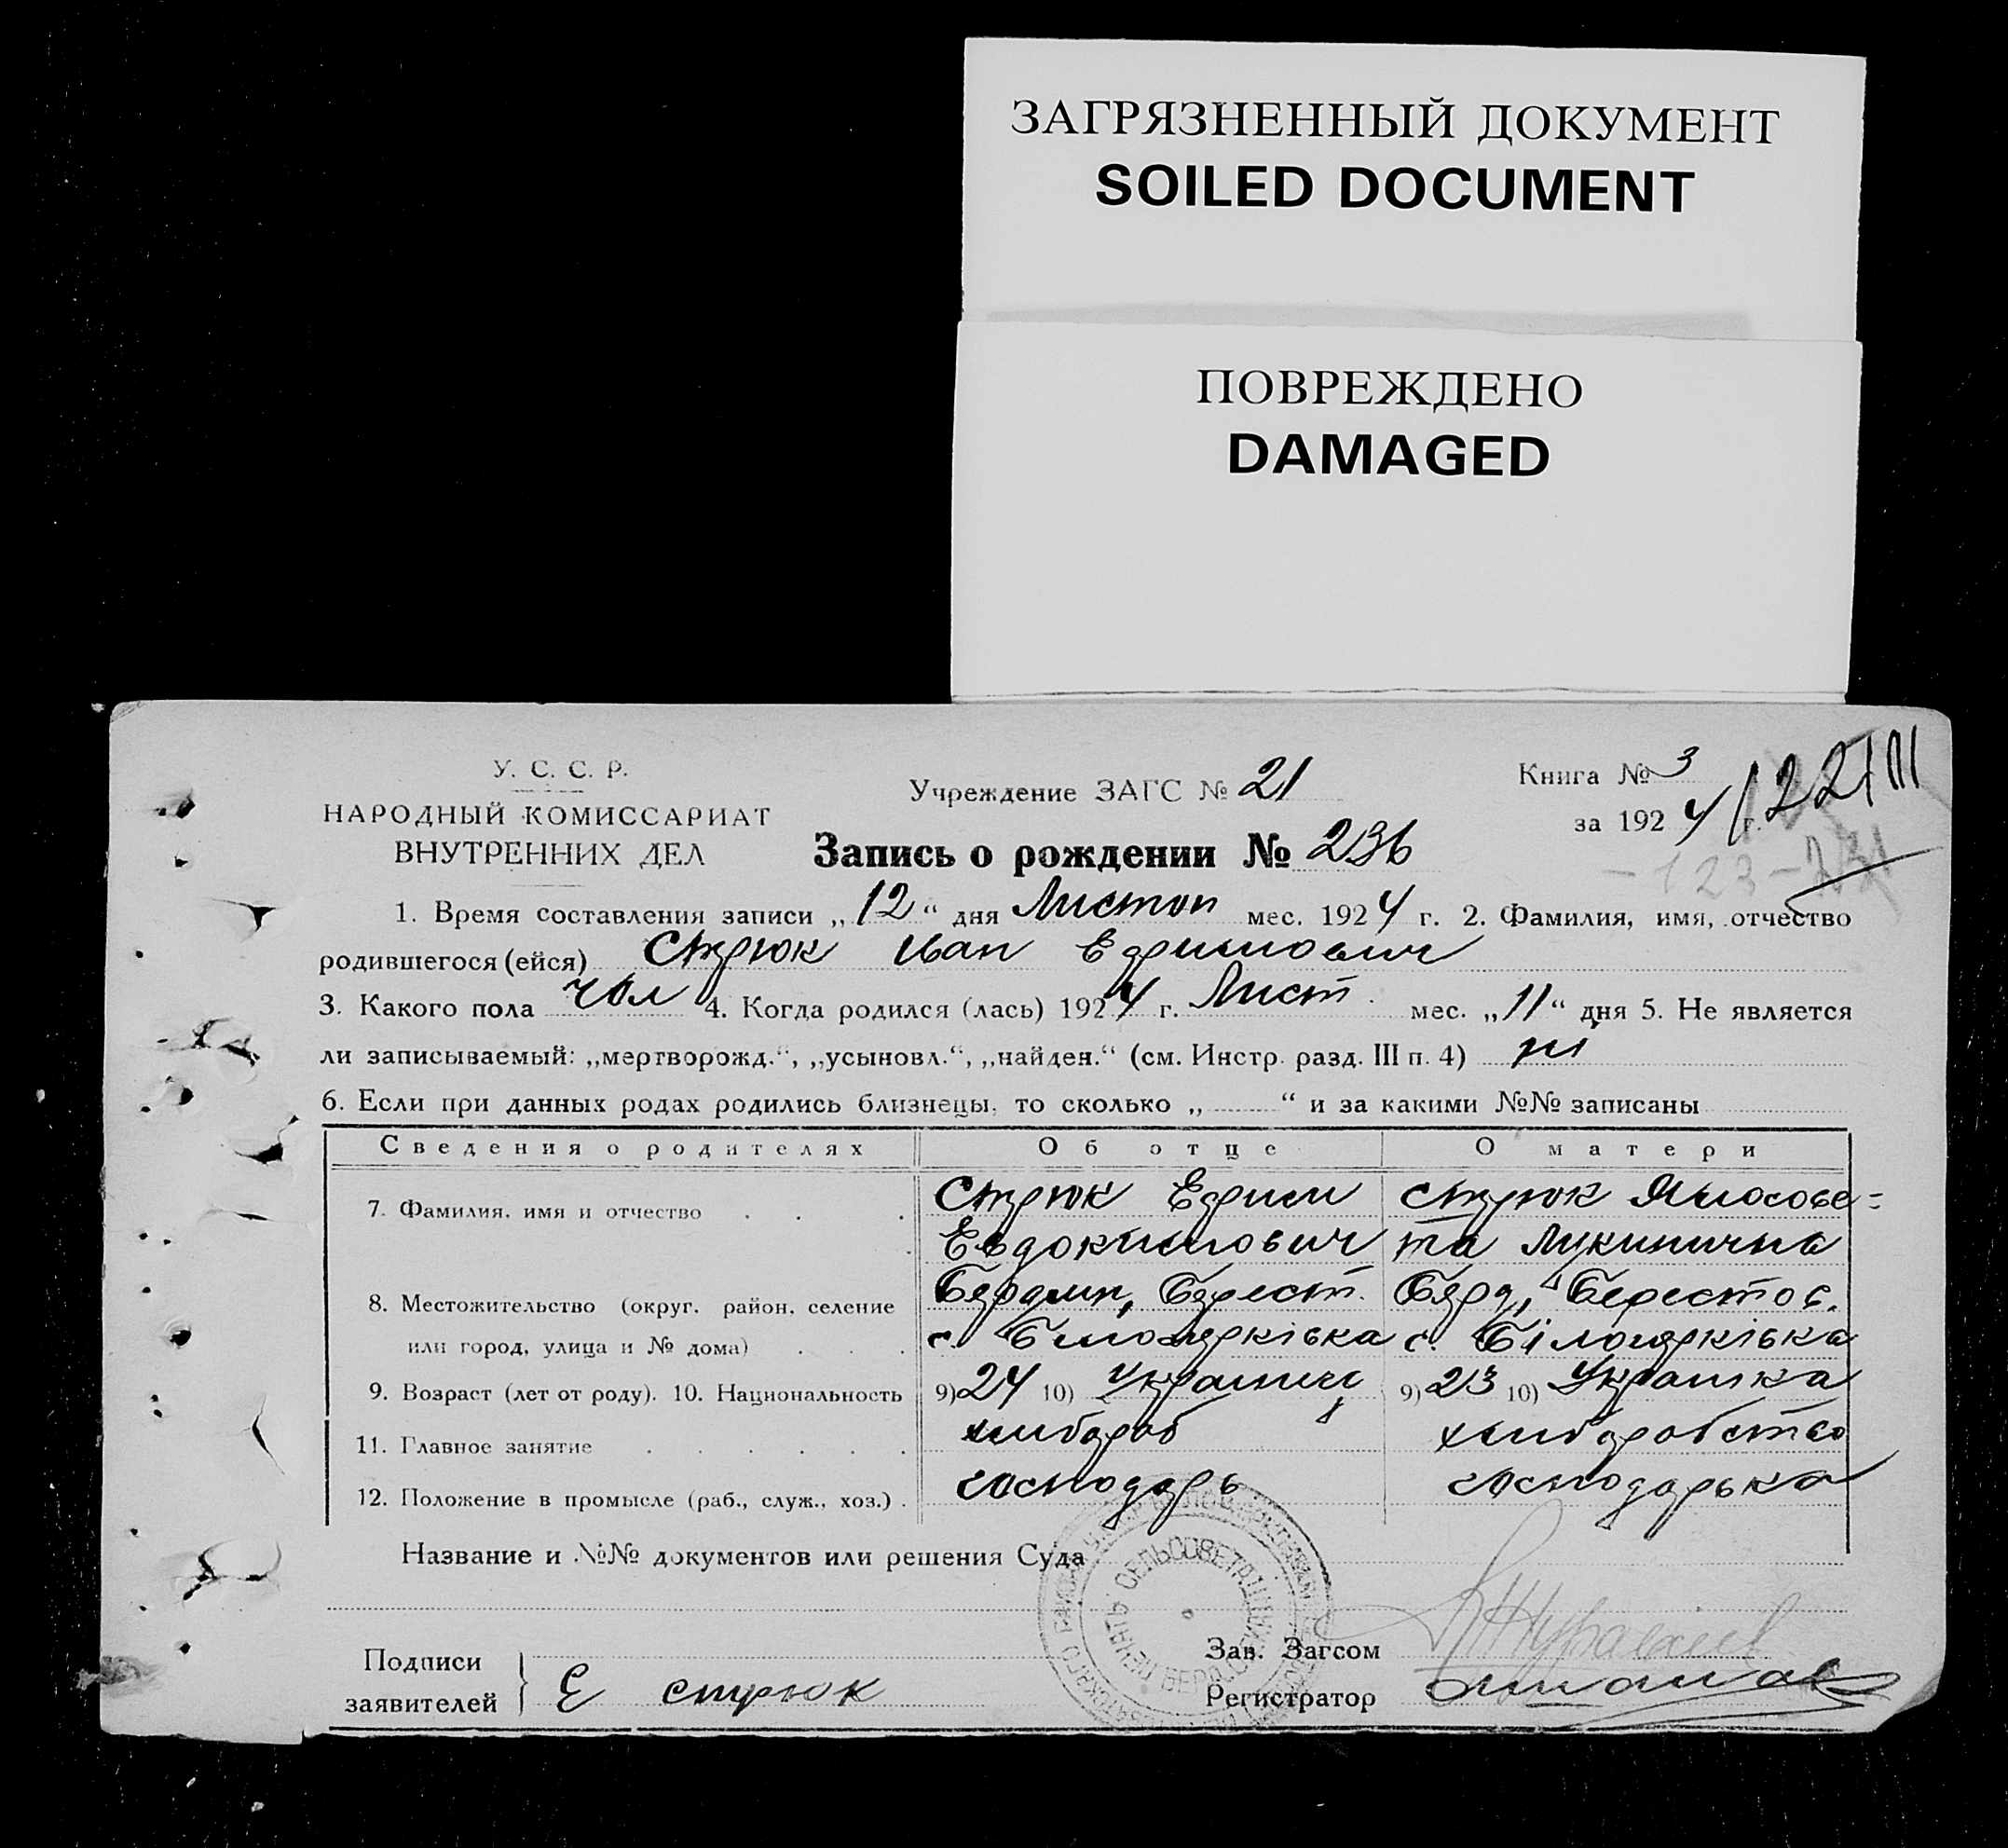 ЗАГРЯЗНЕННЫЙ ДОКУМЕНТ
SOILED DOCUMENT
ПОВРЕЖДЕНО
DAMAGED
У. С. С. Р.
НАРОДНЫЙ КОМИССАРИАТ
ВНУТРЕННИХ ДЕЛ
Учреждение ЗАГС № 21
Книга № 3
за 1924 г.
Запись о рождении № 236
1. Время составления записи „12“ дня Листоп мес. 1924 г. 2. Фамилия, имя, отчество
родившегося (ейся) Стрюк Иван Ефимович
3. Какого пола чол 4. Когда родился (лась) 1924 г. Лист. мес. „11“ дня 5. Не является
ли записываемый: „мертворожд.“, „усыновл.“, „найден.“ (см. Инстр. разд. III п. 4) ні
6. Если при данных родах родились близнецы, то сколько „ “ и за какими №№ записаны
Сведения о родителях Об отце О матери
7. Фамилия, имя и отчество Стрюк Ефим Стрюк
Евдокимович та Лукинична
8. Местожительство (округ, район, селение Бердян, Берест. Берд, Берестов.
или город, улица и № дома) с. Білоцерківка с. Білоцерківка
9. Возраст (лет от роду). 10. Национальность 9) 24 10) Украинец 9) 23 10) Украинка
11. Главное занятие хлибороб хлиборобство
12. Положение в промысле (раб., служ., хоз.) господарь господарька
Название и №№ документов или решения Суда
Подписи
заявителей Е Стрюк
Зав. Загсом
Регистратор